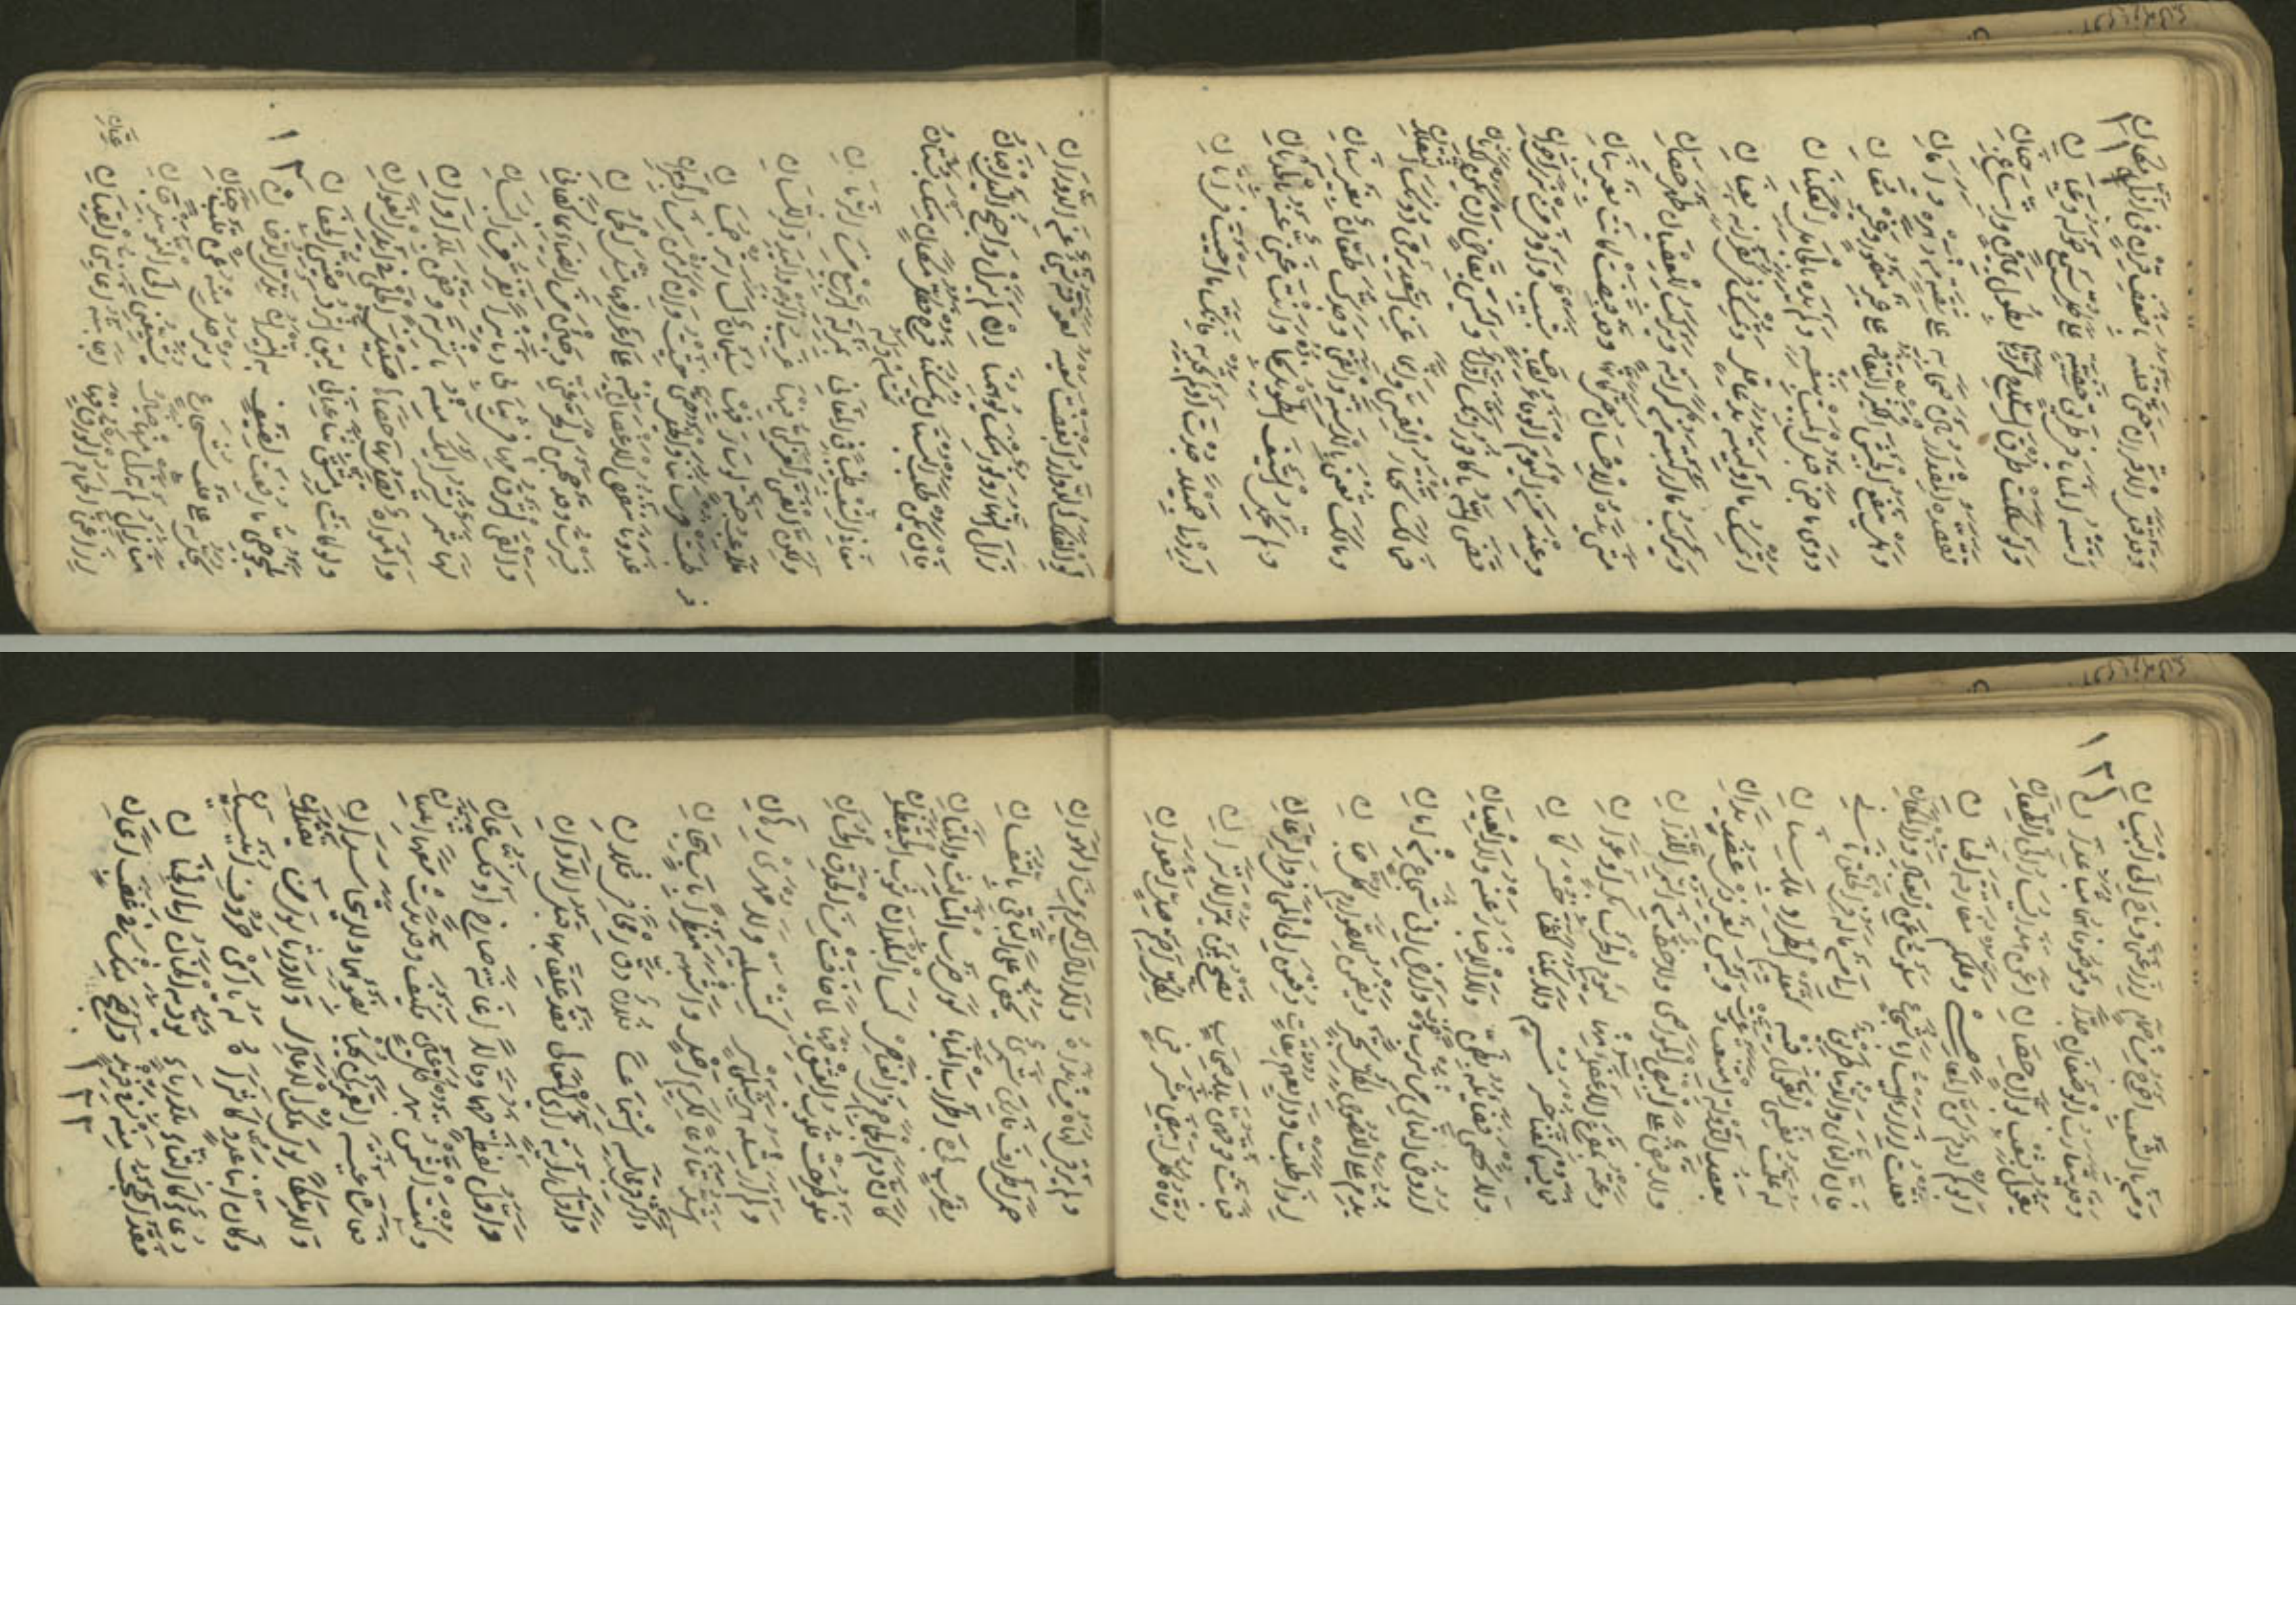 ١١٩
وقد قتل الاقران حتى قتلته باضعف قرن في اذل مكان
اتته المنايا في طريق خفية على كل سمع حوله وعيان
ولو سلكت طرق السلاح لردها بطول يمين واتساع جنان
تقصده المقدار بين صحابه على ثقة من دهره وامان
وهل ينفع الجيش الكثير التفافه على غير منصور وغير معان
ودى ما جنى قبل المبيت بنفسه ولم يده بالجامل العكنان
اتمسك ما اوليته يد عاقل وتمسك في كفرانه بعنان
ويركب ما اركبته من كرامة ويركب للعصيان ظهر حصان
ثنى يده الاحسان حتى كانها وقد قبضت كانت بغير بنان
وعند من اليوم الوفاء لصاحب شبيب واوفى من ترى اخوان
قضى الله يا كافور انك اول وليس بقاض ان يرى لك ثان
فما لك تختار القسي وانما عن السعد يرمي دونك الثقلان
وما لك تعنى بالاسنة والقنا وجدك طعان بغير سنان
ولم تحمل السيف الطويل نجاده وانت غني عنه بالحدثان
ارد لي جميلا جدت او لم تجد به فانك ما احببت في اتاني
لو الفلك الدوار ابغضت سعيه لعوقه شيء عن الدوران
مغاني الشعب طيبا في المغاني بمنزلة الربيع من الزمان
ولكن الفتى العربي فيها غريب الوجه واليد واللسان
ملاعب جنة لو سار فيها سليمان لسار بترجمان
طبت فرساننا والخيل حتى خشيت وان كرمن من الحران
غدونا تنفض الاغصان فيه على اعرافها مثل الجمان
فسرت وقد حجبن الحر عني وجئن من الضياء بما كفاني
والقى الشرق منها في ثيابي دنانيرا تفر من البنان
لها ثمر تشير اليك منه باشربة وقفن بلا اوان
وامواه تصل بها حصاها صليل الحلي في ايدي الغواني
ولو كانت دمشق ثنى عناني لبيق الثرد صيني الجفان
١٢٠
يلنجوجي ما رفعت لضيف به النيران ندي الدخان
تحل به على قلب شجاع وترحل منه عن قلب جبان
منازل لم يزل منها خيال يشيعني الى النوبنذجان
اذا غنى الحمام الورق فيها اجابته اغاني القيان
١٢١
ومن بالشعب احوج من حمام اذا غنى وناح الى البيان
وقد يتقارب الوصفان جدا وموصوفاهما متباعدان
يقول بشعب بوان حصاني اعن هذا يسار الى الطعان
ابوكم ادم سن المعاصي وعلمكم مفارقة الجنان
فقلت اذا رايت ابا شجاع سلوت عن العباد وذا المكان
فان الناس والدنيا طريق الى من ما له في الخلق ثان
له علمت نفسي القول فيهم كتعليم الطراد بلا سنان
بعضد الدولة امتنعت وعزت وليس لغير ذي عضد يدان
ولا قبض على البيض المواضي ولا حظ من السمر اللدان
دعته بمفزع الاعضاء منها ليوم الحرب بكر او عوان
فما يسمي كفناخسر مسم ولا يكني كفناخسر كان
ولا تحصى فضائله بظن ولا الاخبار عنه ولا العيان
اروض الناس من ترب وخوف وارض ابي شجاع من امان
يذم على اللصوص لكل تجر ويضمن للصوارم كل جان
اذا طلبت ودائعهم ثقات دفعن الى المحاني والرعان
فباتت فوقهن بلا صحاب تصيح بمن يمر الا تراني
رقاه كل ابيض مشرفي لكل اصم صل افعوان
وما ترقى لهاه من نداه ولا المال الكريم من الهوان
حمى اطراف فارس شمري يحض على التباقي بالتفاني
بضرب هاج اطراب المنايا سوى ضرب المثالث والمثاني
كان دم الجماجم في العناصي كسا البلدان ريش الحيقطان
فلو طرحت قلوب العشق فيها لما خافت من الحدق الحسان
ولم ار قبله شبلي هزبر كشبليه ولا مهري رهان
اشد تنازعا لكريم اصل واشبه منظرا باب هجان
واكثر في مجالسه استماعا فلان دق رمحا في فلان
واول راية رايا المعالي فقد علقا بها قبل الاوان
واول لفظة فهما وقالا اغاثة صارخ او فك عان
وكنت الشمس تبهر كل عين فكيف وقد بدت معها اثنتان
فعاشا عيشة القمرين يحيا بضوئهما ولا يتحاسدان
ولا ملكا سوى ملك الاعادي ولا ورثا سوى من يقتلان
وكان ابنا عدو كاثراه له ياءي حروف انيسيان
دعاء كالثناء بلا رياء يؤديه الجنان الى الجنان
فقد اصبحت منه في فرند واصبح منك في عضب يمان
١٢٢